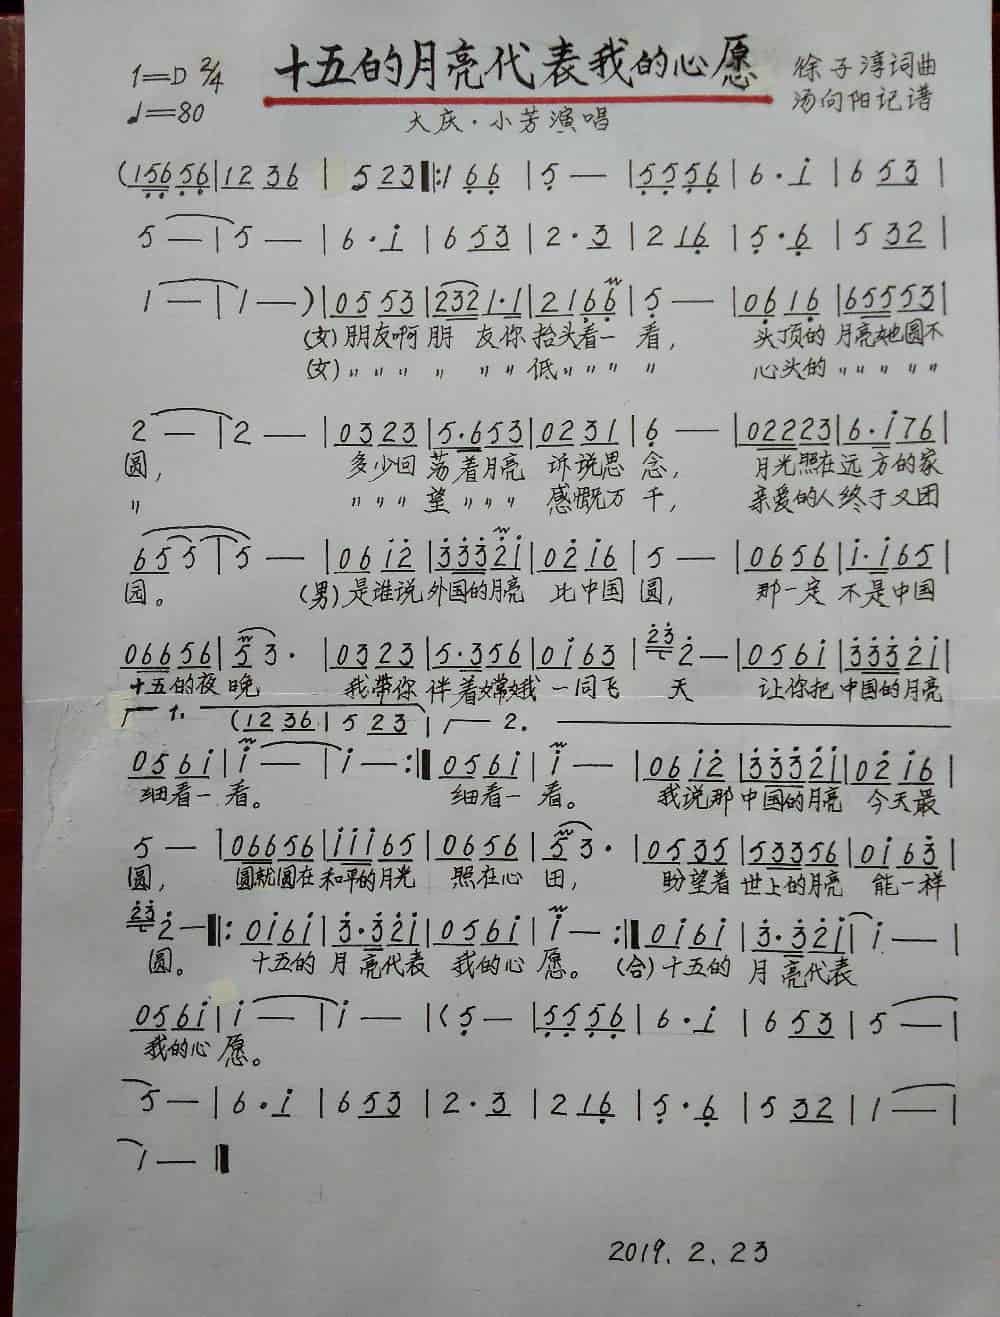 十五的月亮代表我的心愿
1=D 2/4
♩=80
徐子淳词曲
汤向阳记谱
大庆·小芳演唱
(156 56|12 36 | 5 23‖:1 66 |5 — |55 56|6·i |6 53 |
5 — |5 — |6·i |6 53 |2·3 |2 16 |5·6 |5 32 |
1 — |1 —)|05 53|232 1·1|21 66|5 — |06 16|65553|
(女)朋友啊 朋 友你 抬头看一 看, 头顶的 月亮她圆不
(女)〃〃〃 〃 〃〃 低〃〃〃 〃 心头的 〃〃〃〃〃
2 — |2 — |03 23|5·653|02 31|6 — |022 23|6·i76|
圆, 多少回 荡着月亮 诉说思 念, 月光照在远 方的家
〃 〃〃〃 望〃〃〃 感慨万 千, 亲爱的人终于又团
65 5 |5 — |06 i2|33321|02 i6|5 — |06 56|i·i65|
园。 (男)是谁说 外国的月亮 比中国 圆, 那一定 不是中国
066 56|5 3· |03 23|5·356|0i 63|23 2 —|05 6i|33321|
十五的夜 晚 我带你 伴着嫦娥 一同飞 天 让你把 中国的月亮
1. (12 36|5 23) 2.
05 6i|i — |i —:‖05 6i|i — |06 i2|33321|02 i6|
细看一 看。 细看一 看。 我说那 中国的月亮 今天最
5 — |066 56|iii65|06 56|5 3· |05 35|53356|0i 63|
圆, 圆就圆在 和平的月光 照在心 田, 盼望着 世上的月亮 能一样
23 2 —‖:0i 6i|3·32i|05 6i|i — :‖0i 6i|3·32i|i — |
圆。 十五的 月 亮代表 我的心 愿。 (合)十五的 月 亮代表
05 6i|i — |i — |(5 — |55 56|6·i |6 53 |5 — |
我的心 愿。
5 — |6·i |6 53 |2·3 |2 16 |5·6 |5 32 |1 — |
1 — ‖
2019.2.23